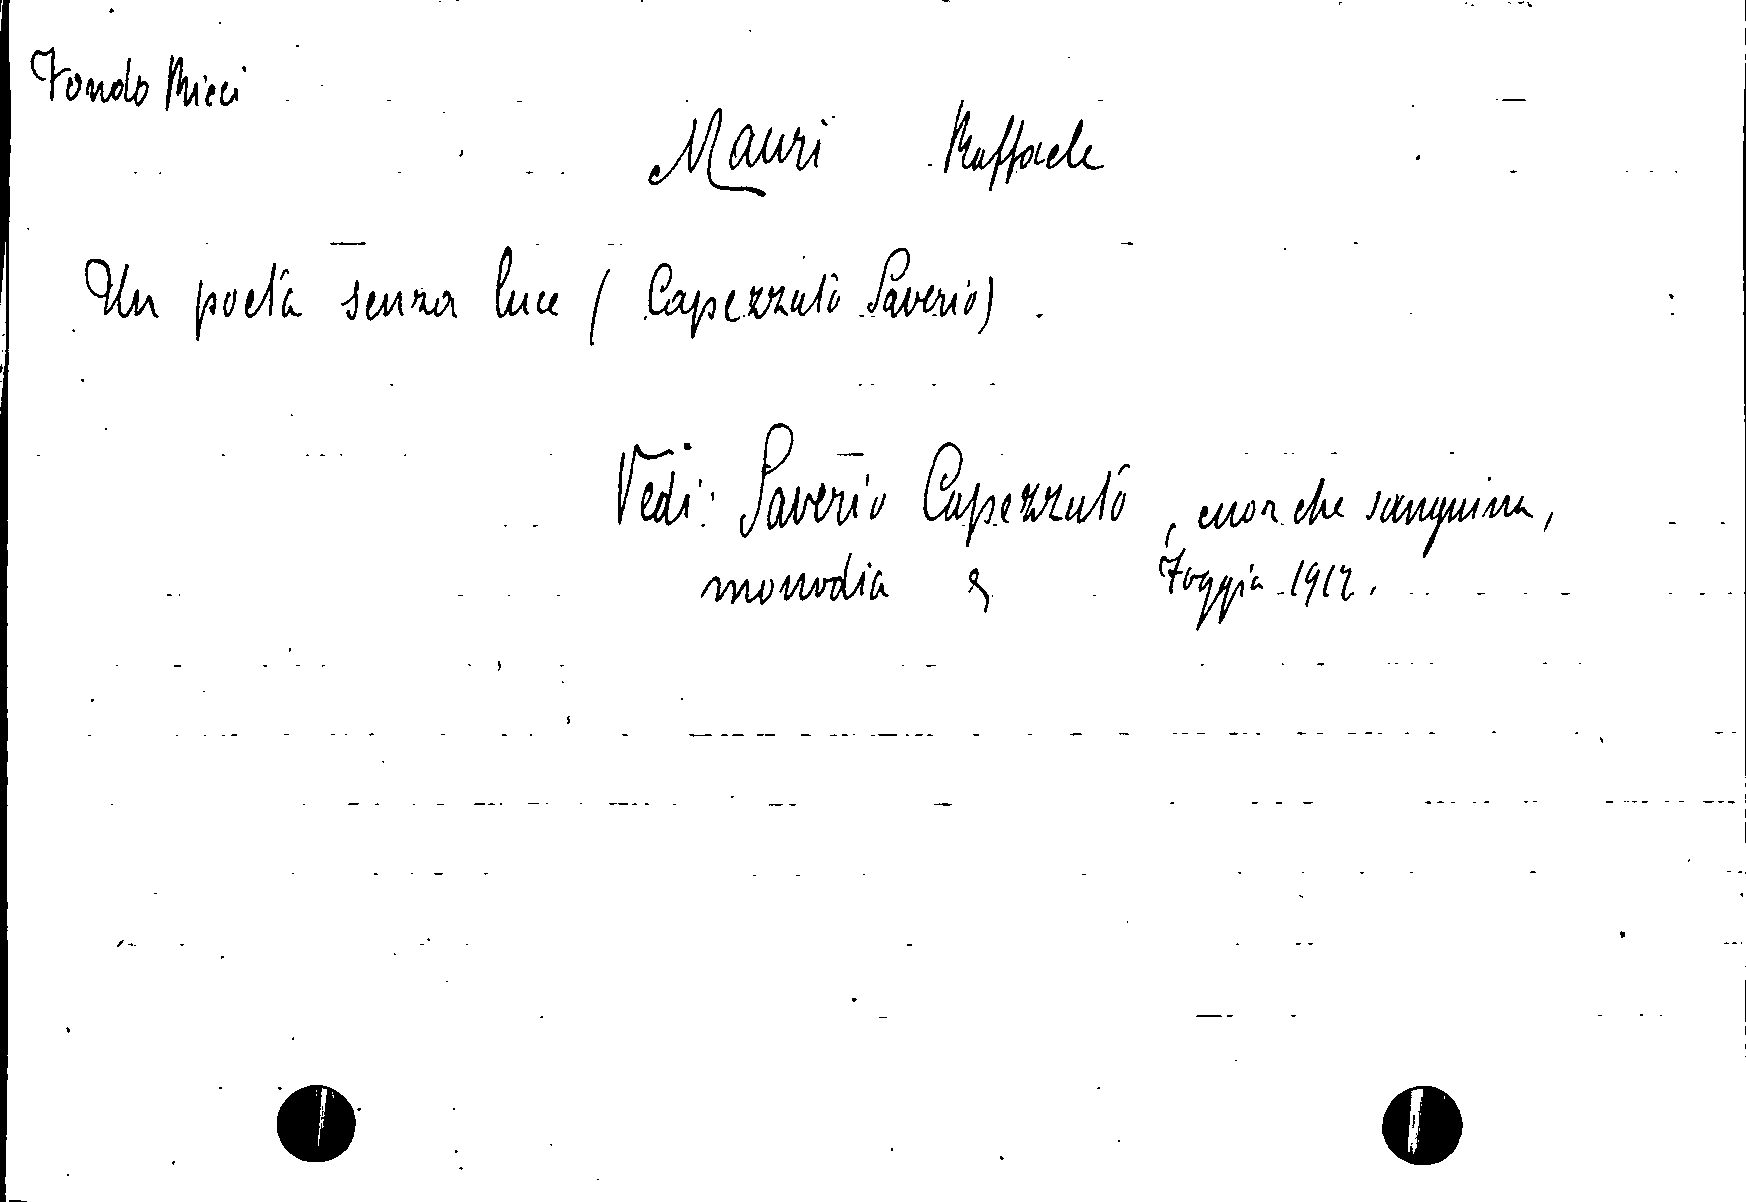 Fondo Ricci
Mauri Raffaele
Un poeta senza luce ( Capezzuto Saverio) .
Vedi: Saverio Capezzuto , cuor che sanguina,
monodia Foggia 1912.